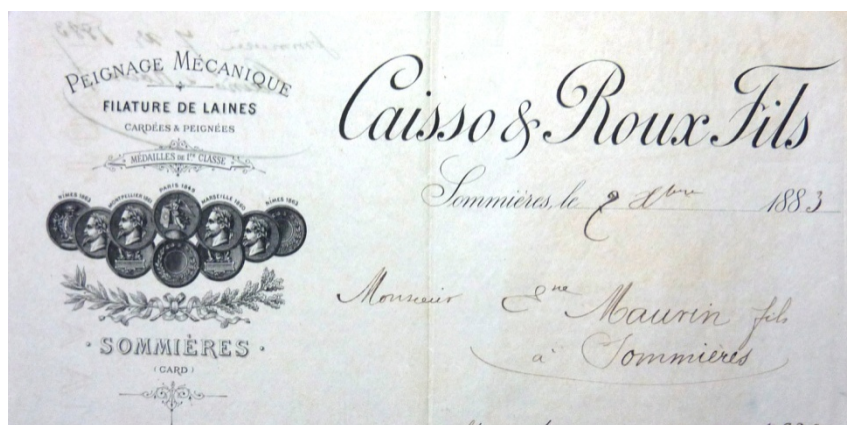 PEIGNAGE MÉCANIQUE
FILATURE DE LAINES
CARDÉES & PEIGNÉES
MÉDAILLES DE 1re CLASSE
NIMES 1863
MONTPELLIER
PARIS
MARSEILLE
NIMES 1863
SOMMIÈRES
(GARD)
Caisso & Roux Fils
Sommières, le 2 Xbre 1883
Monsieur Ene Maurin fils
à Sommières